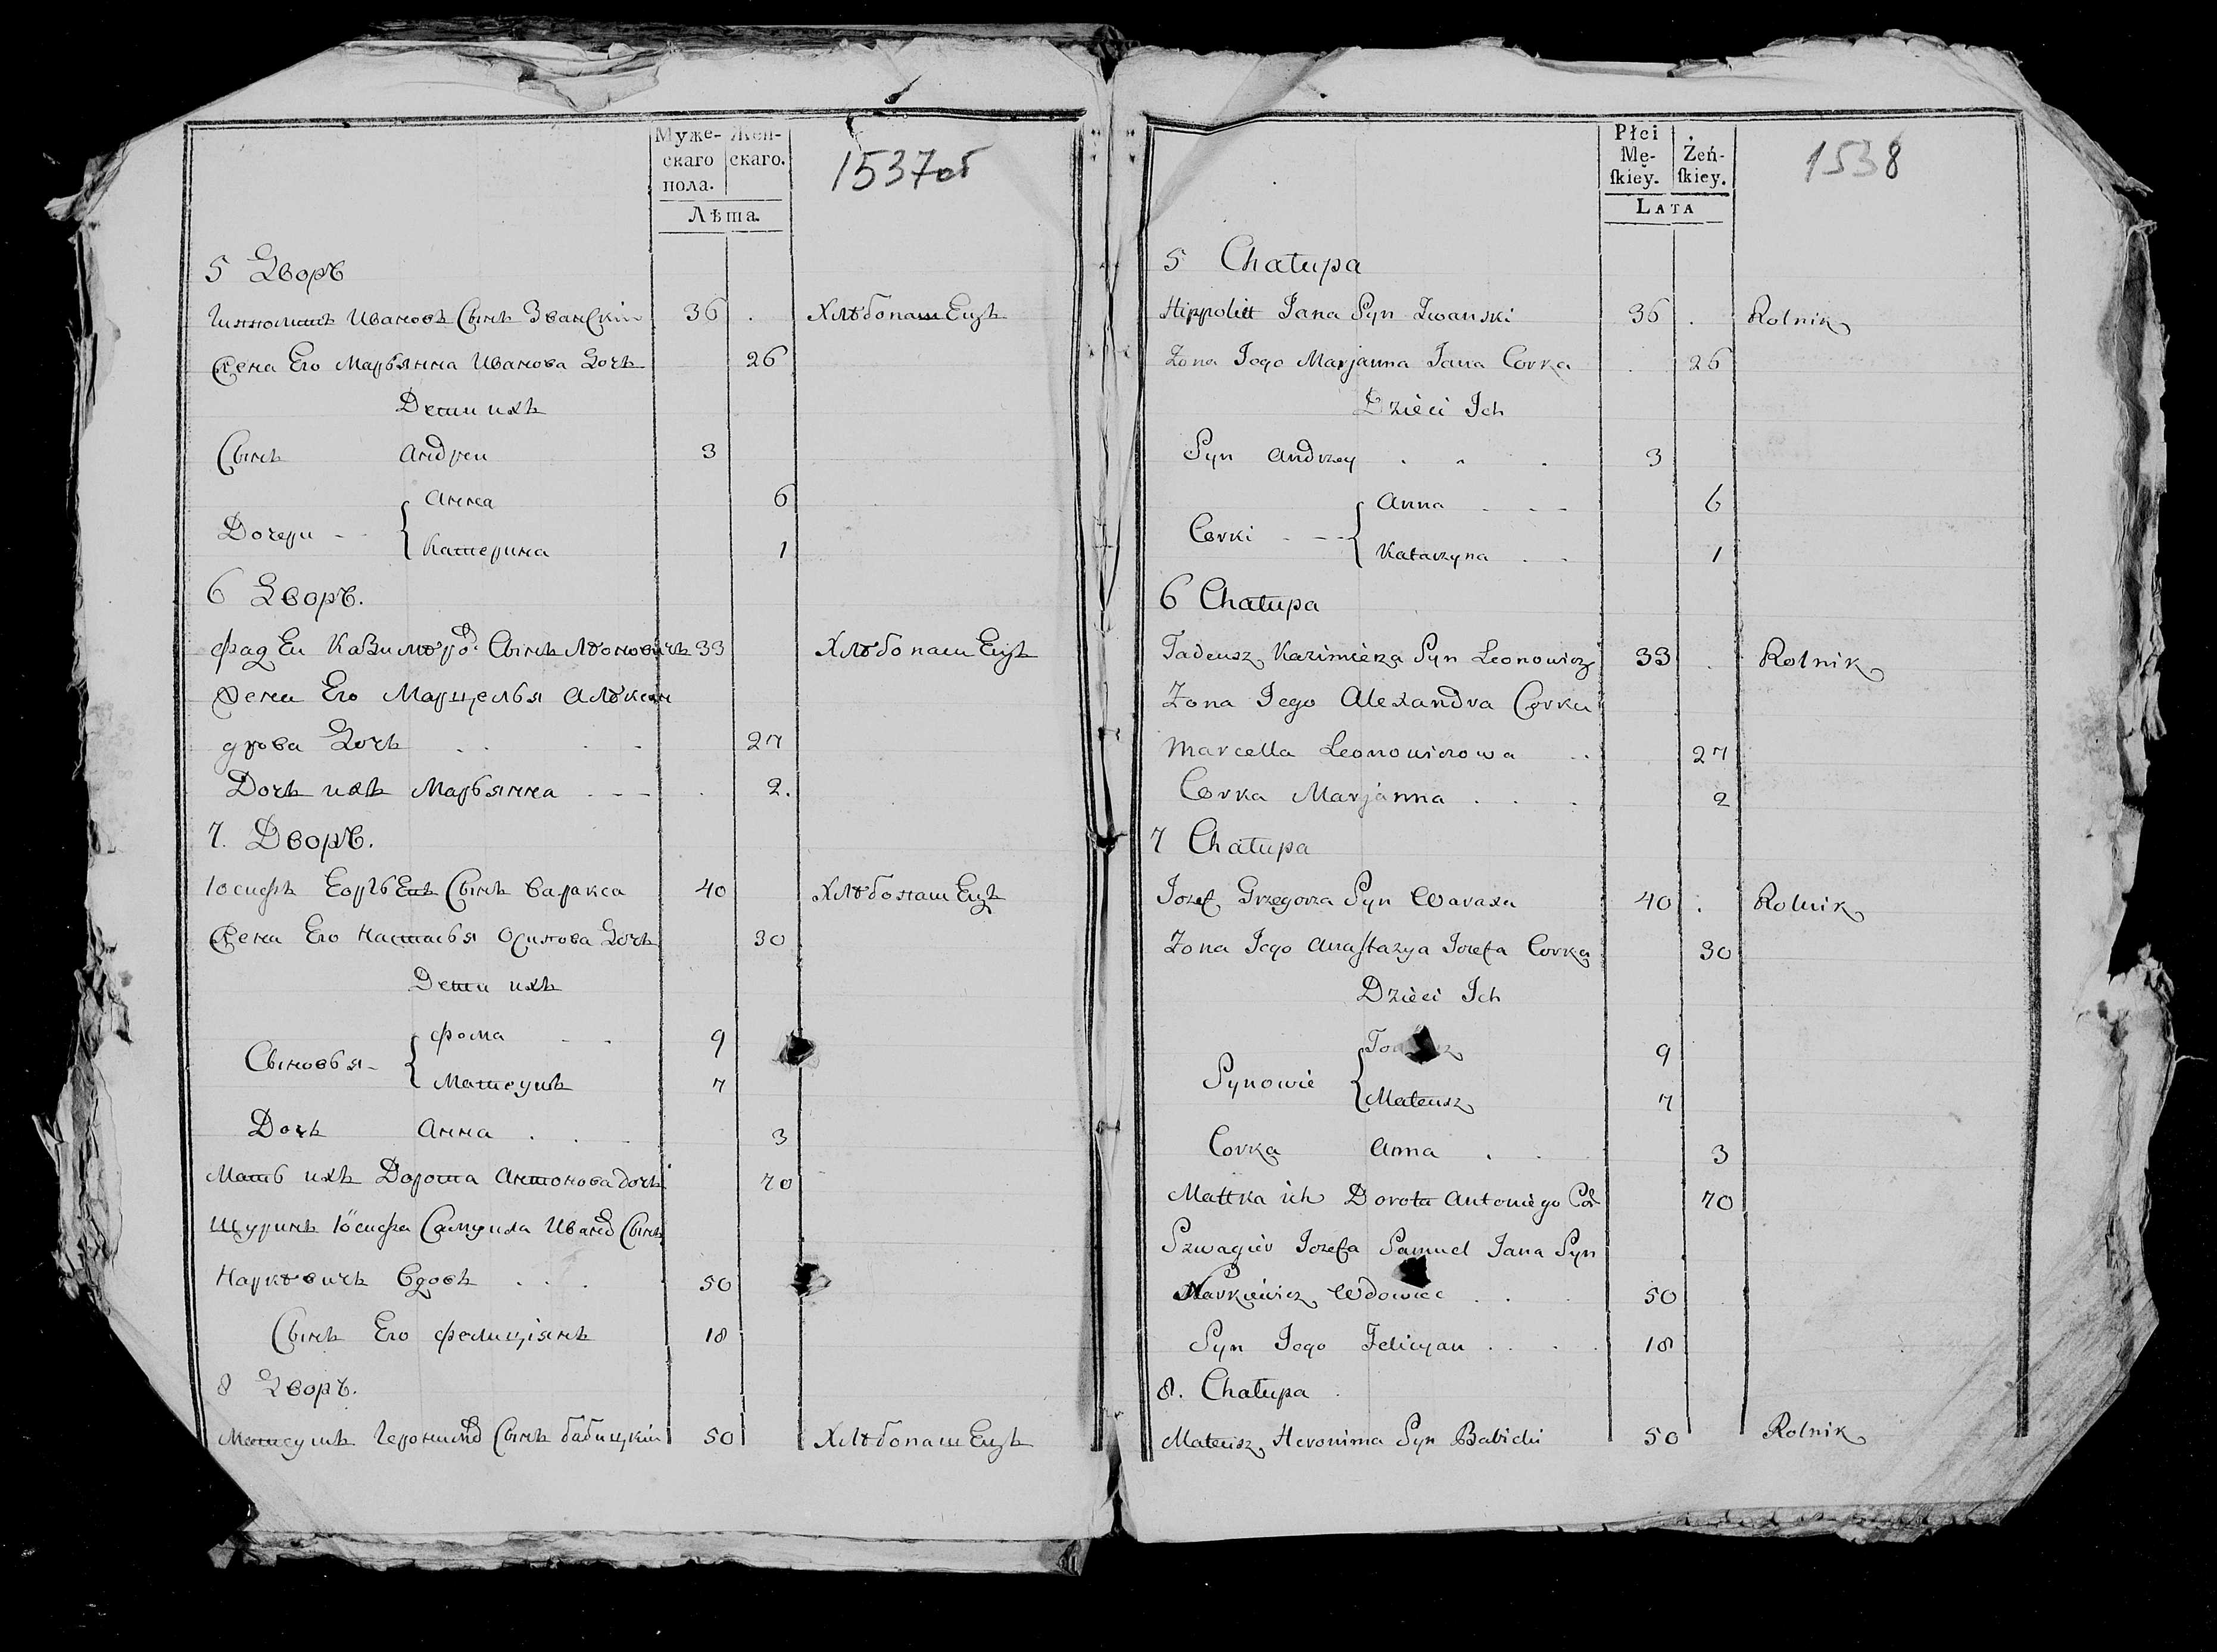 Муже-
скаго
пола.
Жен-
скаго.
Лѣта.
1537об
5 Дворъ
Ипполитъ Ивановъ Сынъ Званскій 36 . ХлѣбопашЕцъ
Жена Его Марьянна Иванова Дочь 26
Дети ихъ
Сынъ Андреи 3
Анна 6
Дочери - -
Катерина 1
6 Дворъ.
ФадЕи Казимѣро: Сынъ Лѣоновичъ 33 ХлѣбопашЕцъ
Жена Его Марцелья Алѣксан
дрова Дочь . . . 27
Дочь ихъ Марьянна - - - . 2.
7. Дворъ.
Іосифъ ЕорьЕвъ СынъВаракса 40 ХлѣбопашЕцъ
Жена Его Настасья Осипова Дочь 30
Дети ихъ
Фома - - 9
Сыновья -
Матеушъ 7
Дочь Анна . . 3
Мать ихъ Дорота Антонова дочь 70
Щуринъ Іосифа Самуила Иванов Сынъ
Наркѣвичъ Вдовъ . . . 50
Сынъ Его Фелиціянъ 18
8 Дворъ.
Матеушъ Геронимов Сынъ Бабицкіи 50 ХлѣбопашЕцъ
Płci
Mę-
ſkiey.
Żeń-
ſkiey.
LATA
1538
5 Chałupa
Hippolitt Jana Syn Zwanski 36 . Rolnik
Zona Jego Marjanna Jana Corka . 26
Dzieci Ich
Syn Andrzey . . . 3
Anna - - - 6
Corki - - -
Katarzyna . . 1
6 Chałupa
Tadeusz Kazimierza Syn Leonowicz 33 . Rolnik
Zona Jego Alexandra Corka
Marcella Leonowiczowa . . 27
Corka Marjanna . . . 2
7 Chałupa
Jozef Grzegorza Syn Waraxa 40 . Rolnik
Zona Jego Anastazya Jozefa Corka 30
Dzieci Ich
9
Synowie
Mateusz 7
Corka Anna . . 3
Mattka ich Dorota Antoniego Cór 70
Szwagier Jozefa Samuel Jana Syn
Narkiewicz Wdowiec . . . 50
Syn Jego Felicyan . . . 18
8. Chałupa
Mateusz Heronima Syn Babicki 50 Rolnik